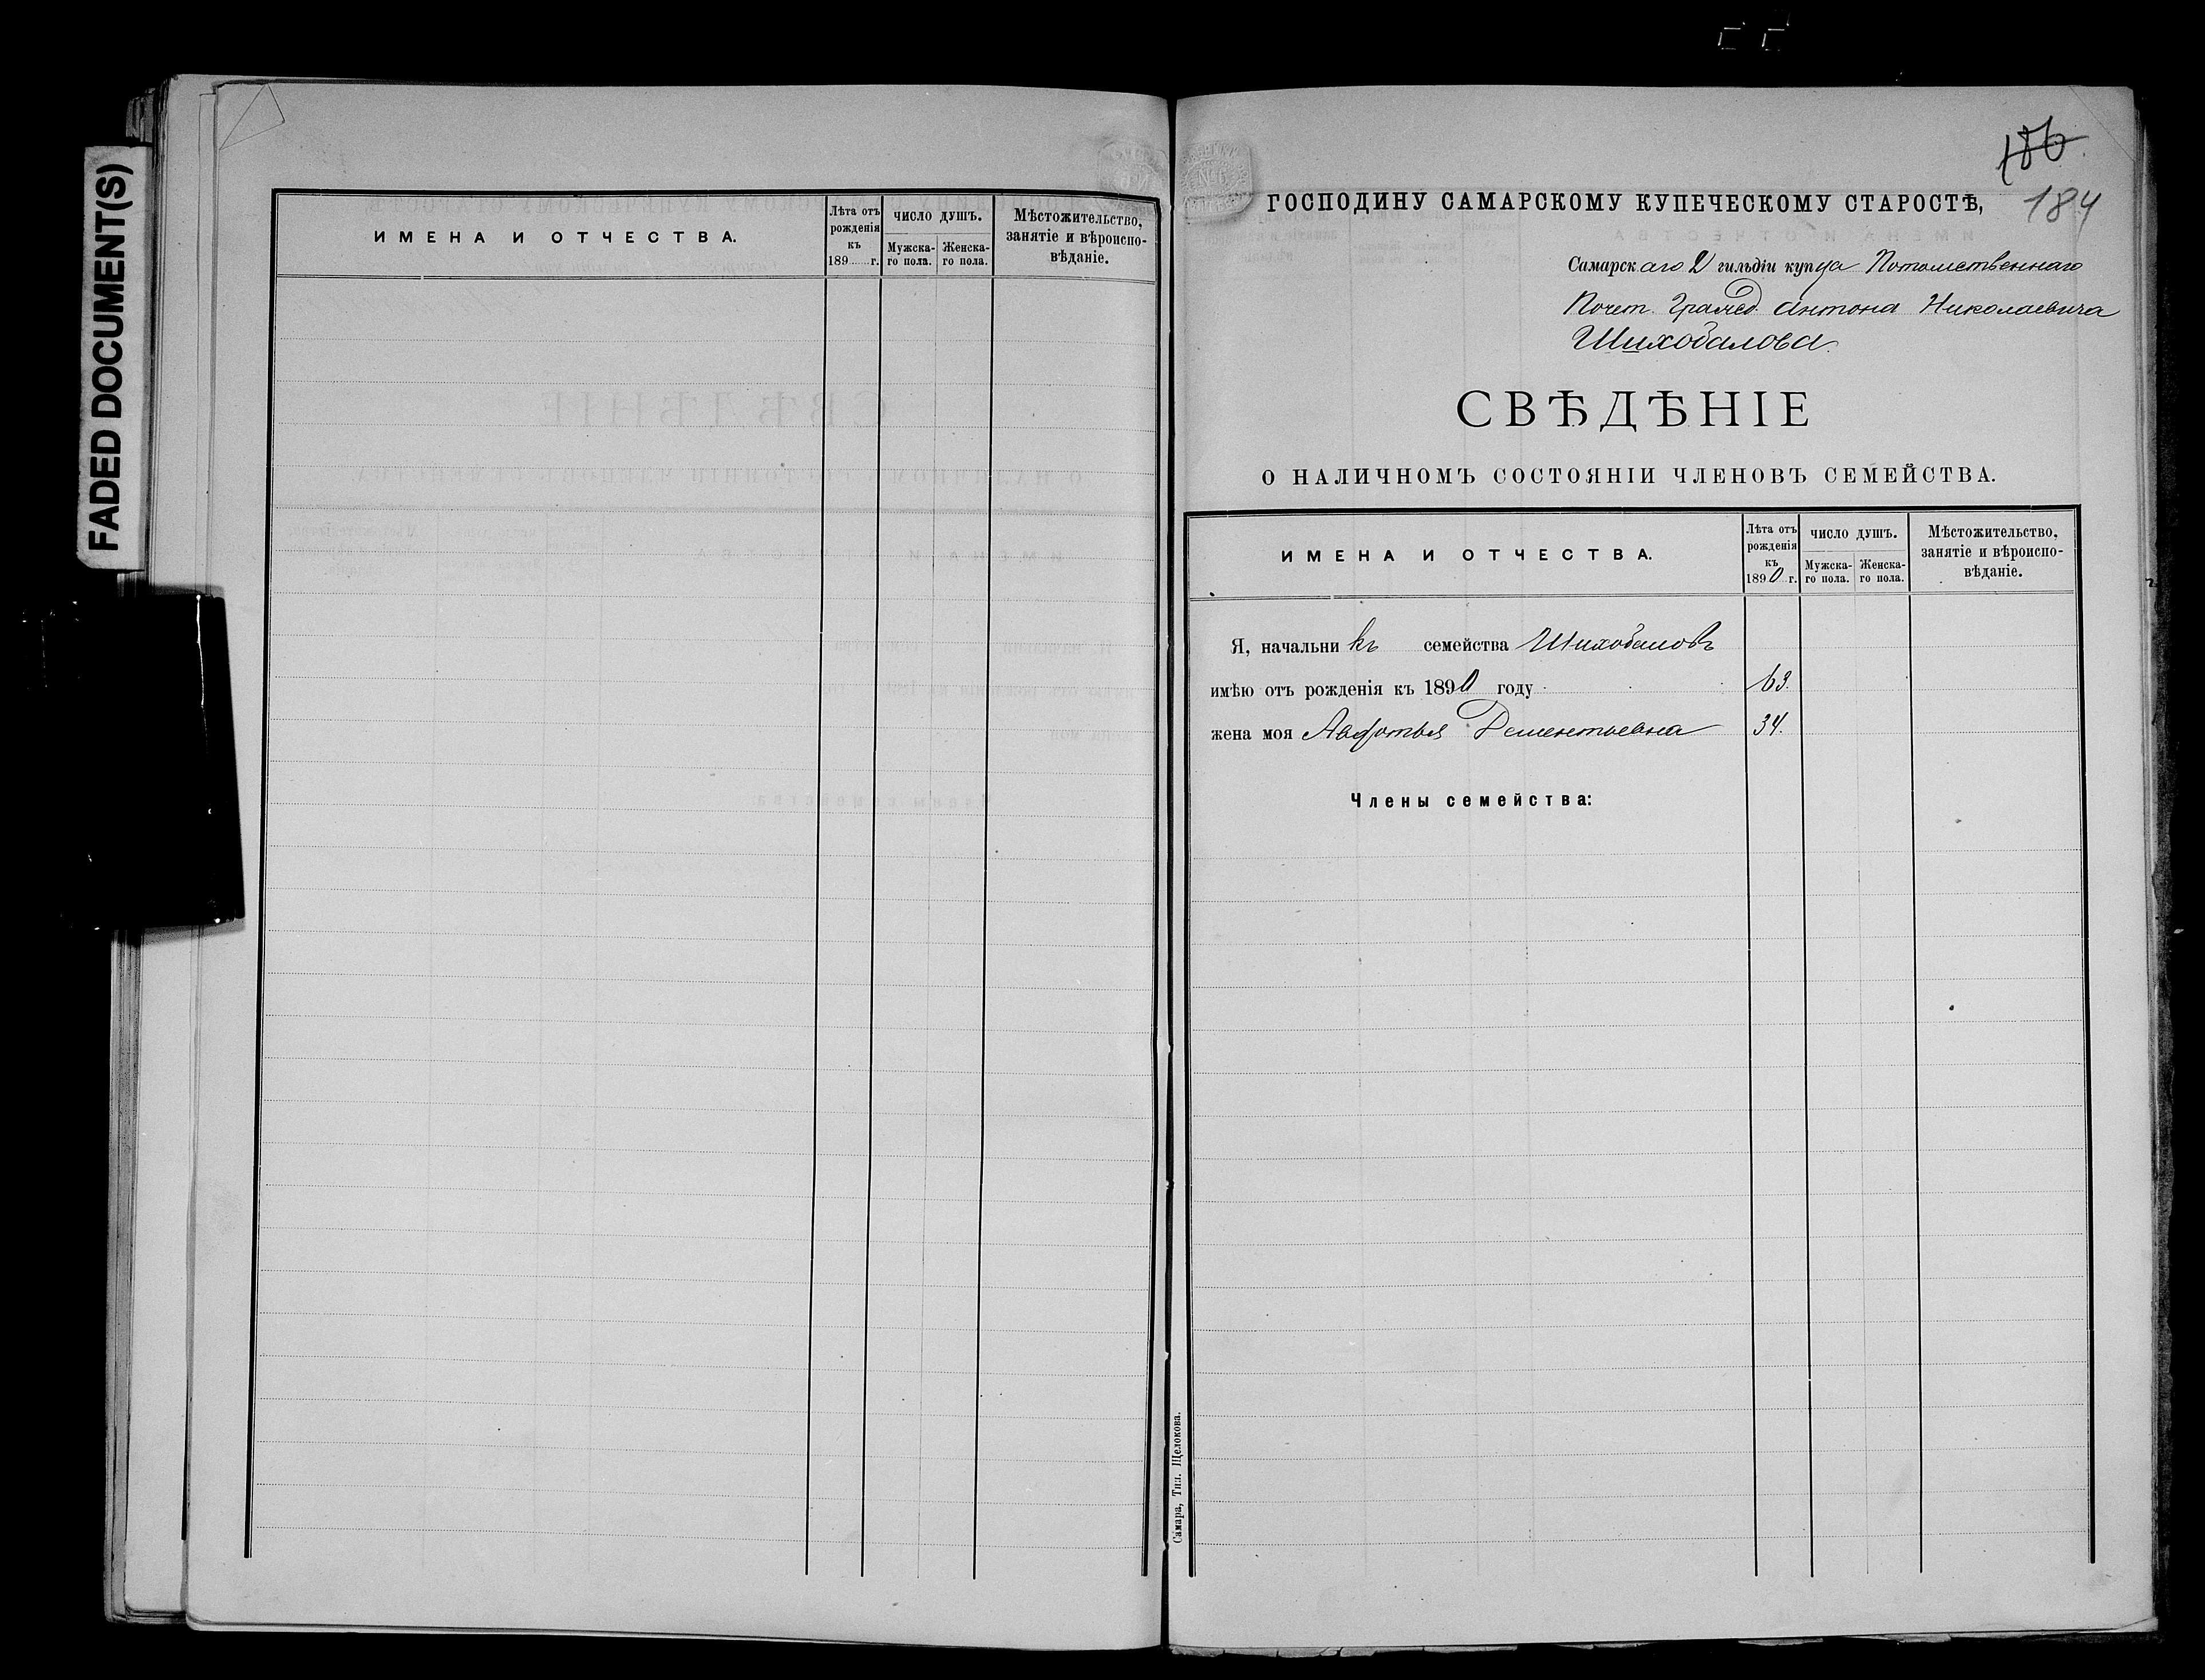 FADED DOCUMENT(S)
ИМЕНА И ОТЧЕСТВА.
Лѣта отъ рожденія къ 189 г.
ЧИСЛО ДУШЪ.
Мужска-го пола.
Женска-го пола.
Мѣстожительство, занятіе и вѣроиспо-вѣданіе.
186
184
ГОСПОДИНУ САМАРСКОМУ КУПЕЧЕСКОМУ СТАРОСТѢ,
Самарскаго 2 гильдіи купца Потомственнаго
Почет. Гражд. Антона Николаевича
Шихобалова.
СВѢДѢНІЕ
О НАЛИЧНОМЪ СОСТОЯНІИ ЧЛЕНОВЪ СЕМЕЙСТВА.
ИМЕНА И ОТЧЕСТВА.
Лѣта отъ рожденія къ 1890 г.
ЧИСЛО ДУШЪ.
Мужска-го пола.
Женска-го пола.
Мѣстожительство, занятіе и вѣроиспо-вѣданіе.
Я, начальникъ семейства Шихобаловъ
имѣю отъ рожденія къ 1890 году 63.
жена моя Авдотья Дементьевна 34.
Члены семейства:
Самара, Тип. Щелокова.